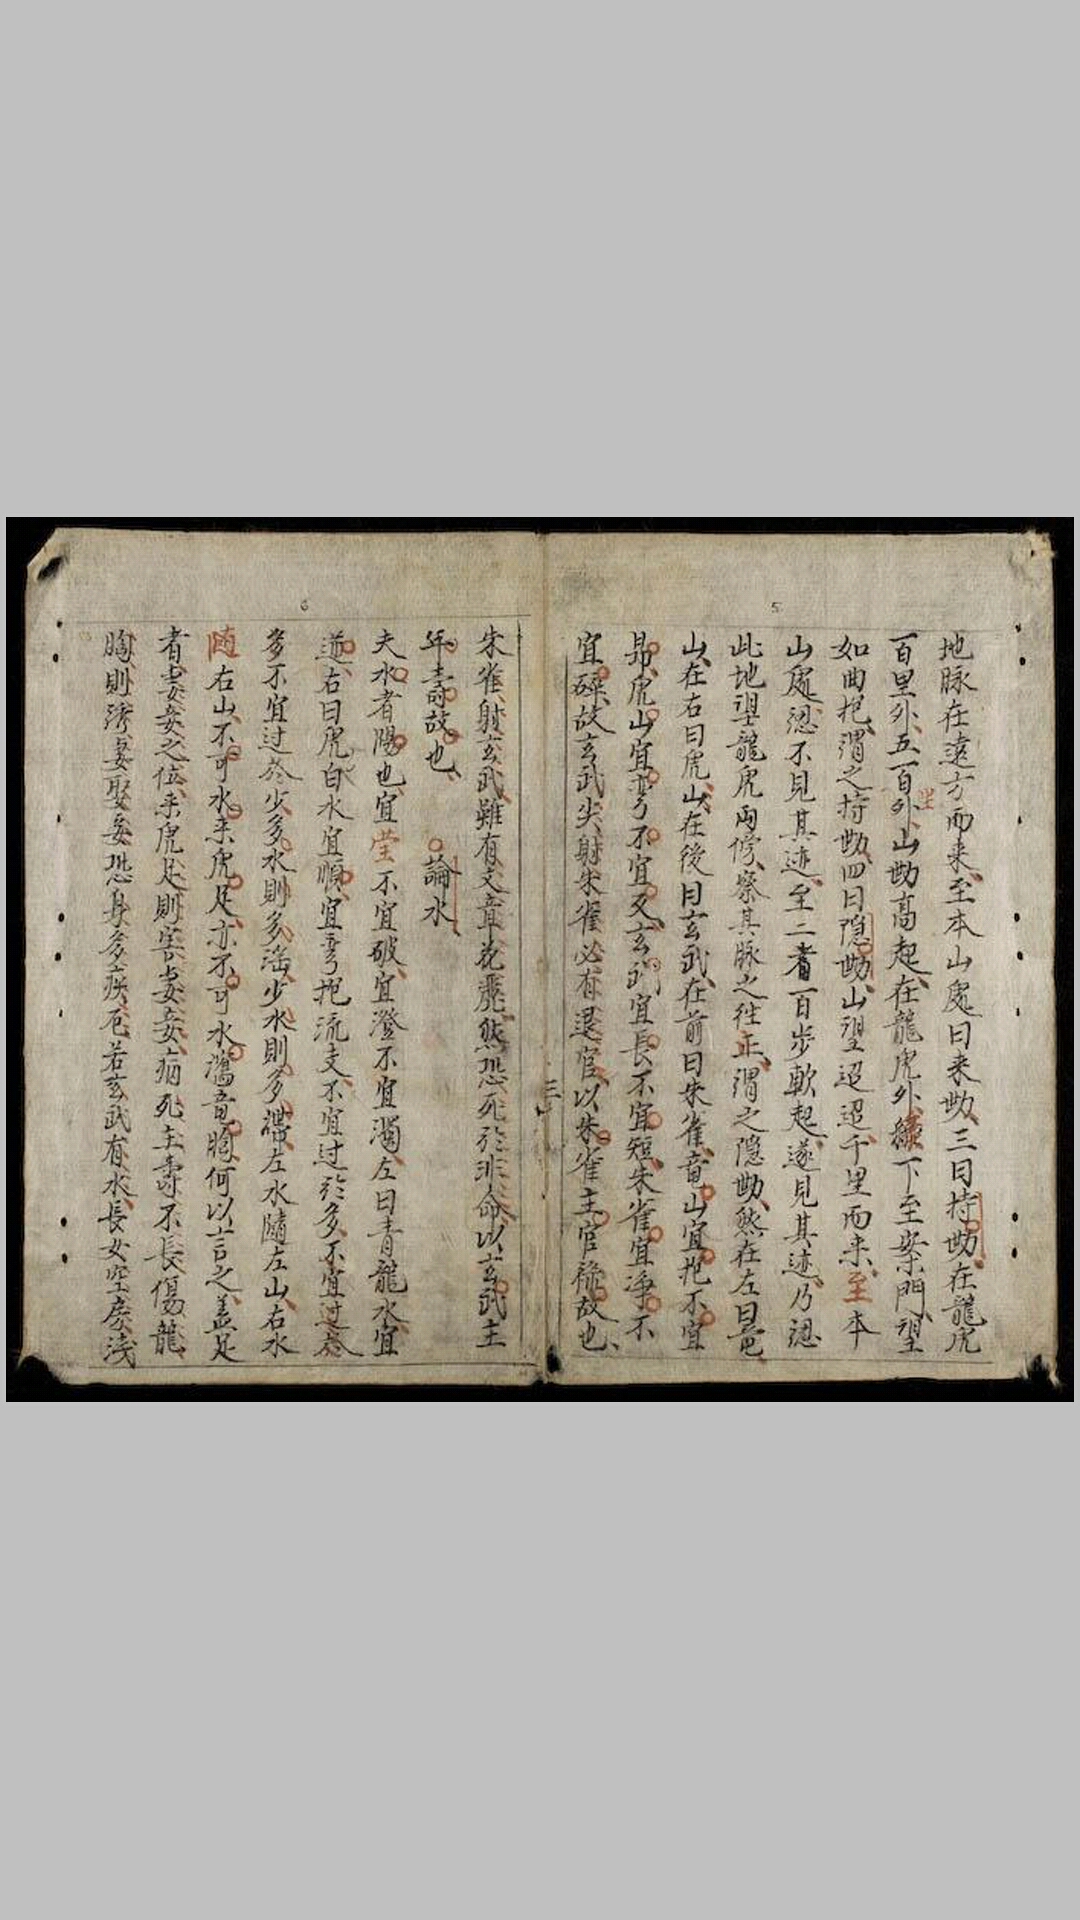 5
地脉在遠方而来至本山處曰来勘三曰持勘在龍虎
百里外五百外山勘高起在龍虎外下至案門望
如曲抱謂之持勘四曰隠勘山望迢迢千里而来至本
山處認不見其迹至二者百步軟起遂見其迹乃認
此地望龍虎両傍察其脉之往正謂之隠勘然在左曰竜
山在右曰虎山在後曰玄武在前曰朱雀竜山宜抱不宜
昂虎山宜弯不宜叉玄武宜長不宜短朱雀宜凈不
宜故玄武尖射朱雀必有退官以朱雀主官祿故也
三
6
朱雀射玄武雖有文章花飛然恐死於非命以玄武主
年壽故也
論水
夫水者陽也宜瑩不宜破宜澄不宜濁左曰青龍水宜
右曰虎白水宜順宜弯抱流支不宜过於多不宜过
多不宜过於少多水則多滛少水則多滯左水隨左山右水
随右山不可水来虎足亦不可水竜胸何以言之盖足
者妻妾之位来虎足則害妻妾病死主壽不長傷龍
胸則妻娶妾恐身多疾厄若玄武有水長女空房浅